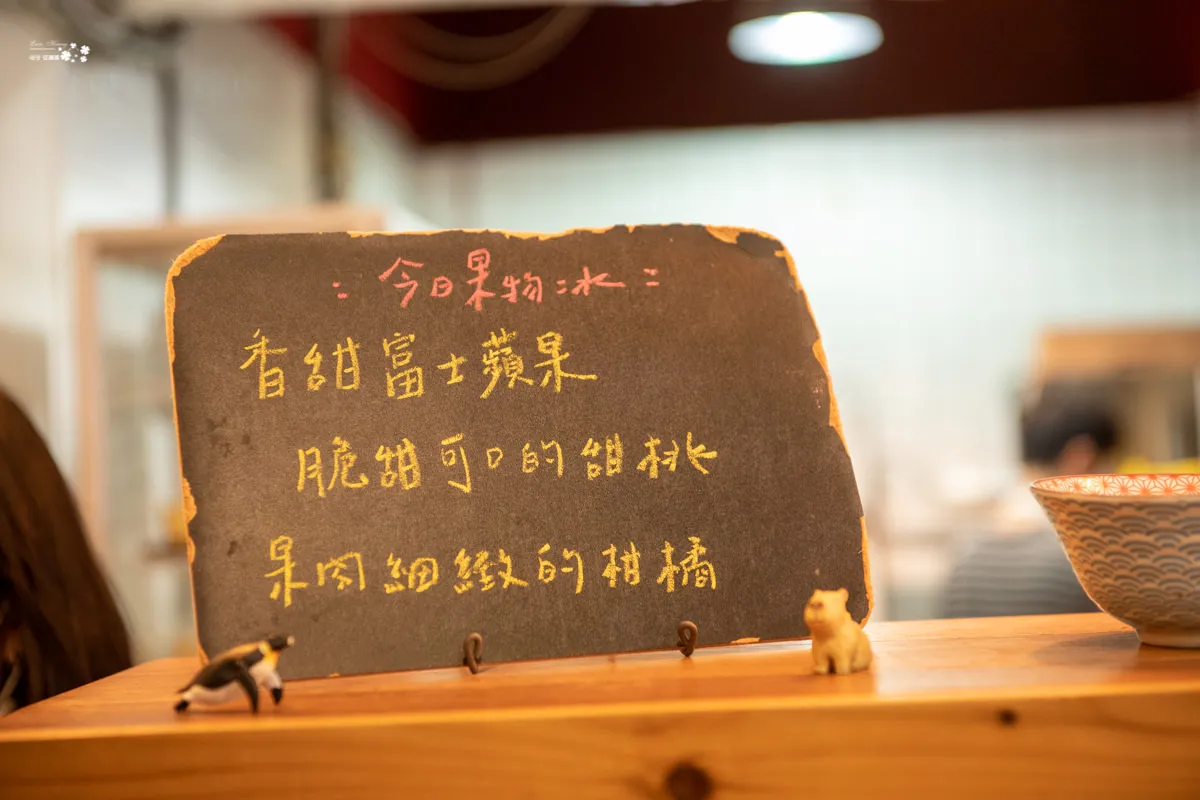 :: 今日果物冰 ::
香甜富士蘋果
脆甜可口的甜桃
果肉細緻的柑橘